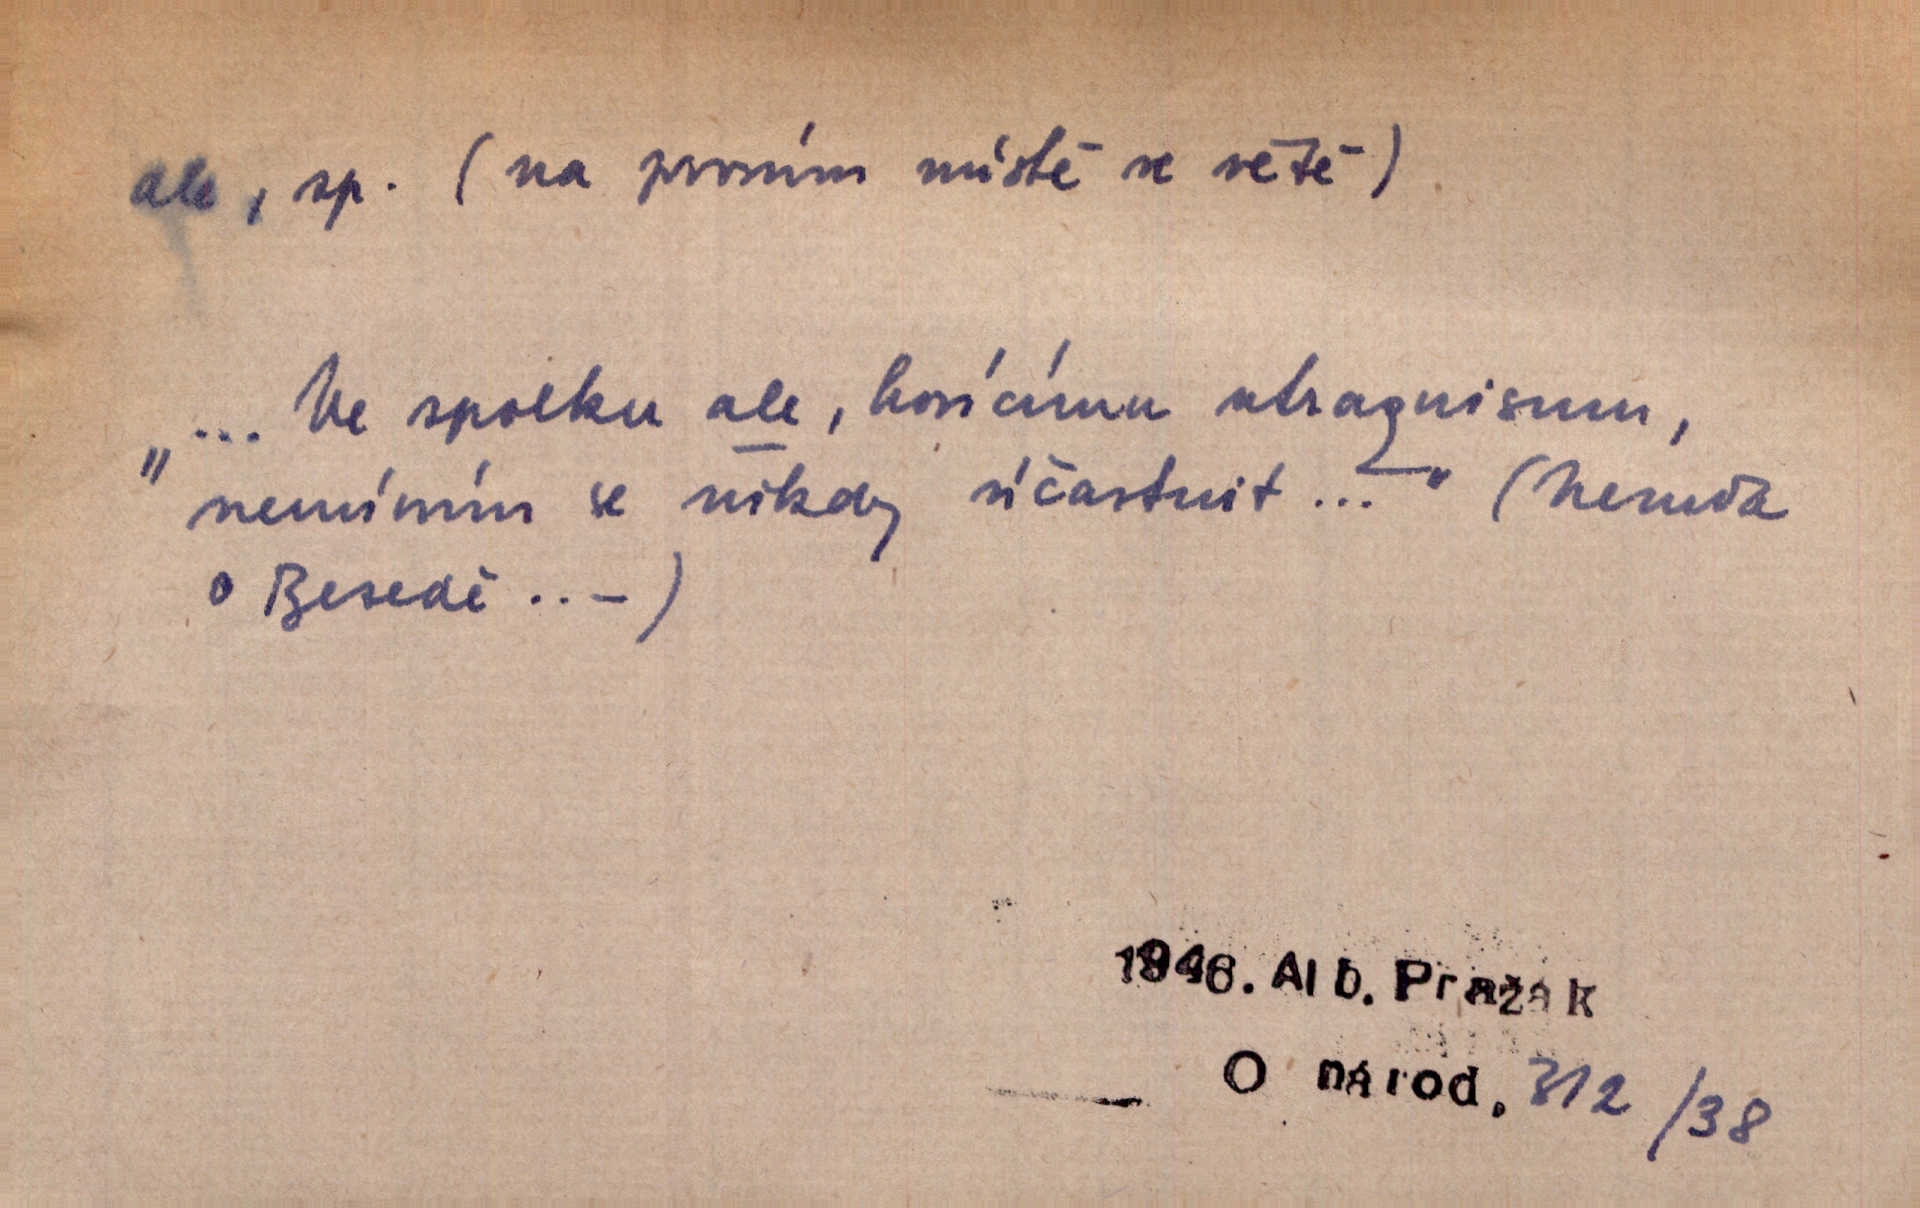 ale, sp. (na prvním místě ve větě)
„... Ve spolku ale, hovícímu utraquismu,
nemíním se nikdy súčastnit ..." (Neruda
o Besedě ..–)
1946. Alb. Pražák
O národ. 312/38